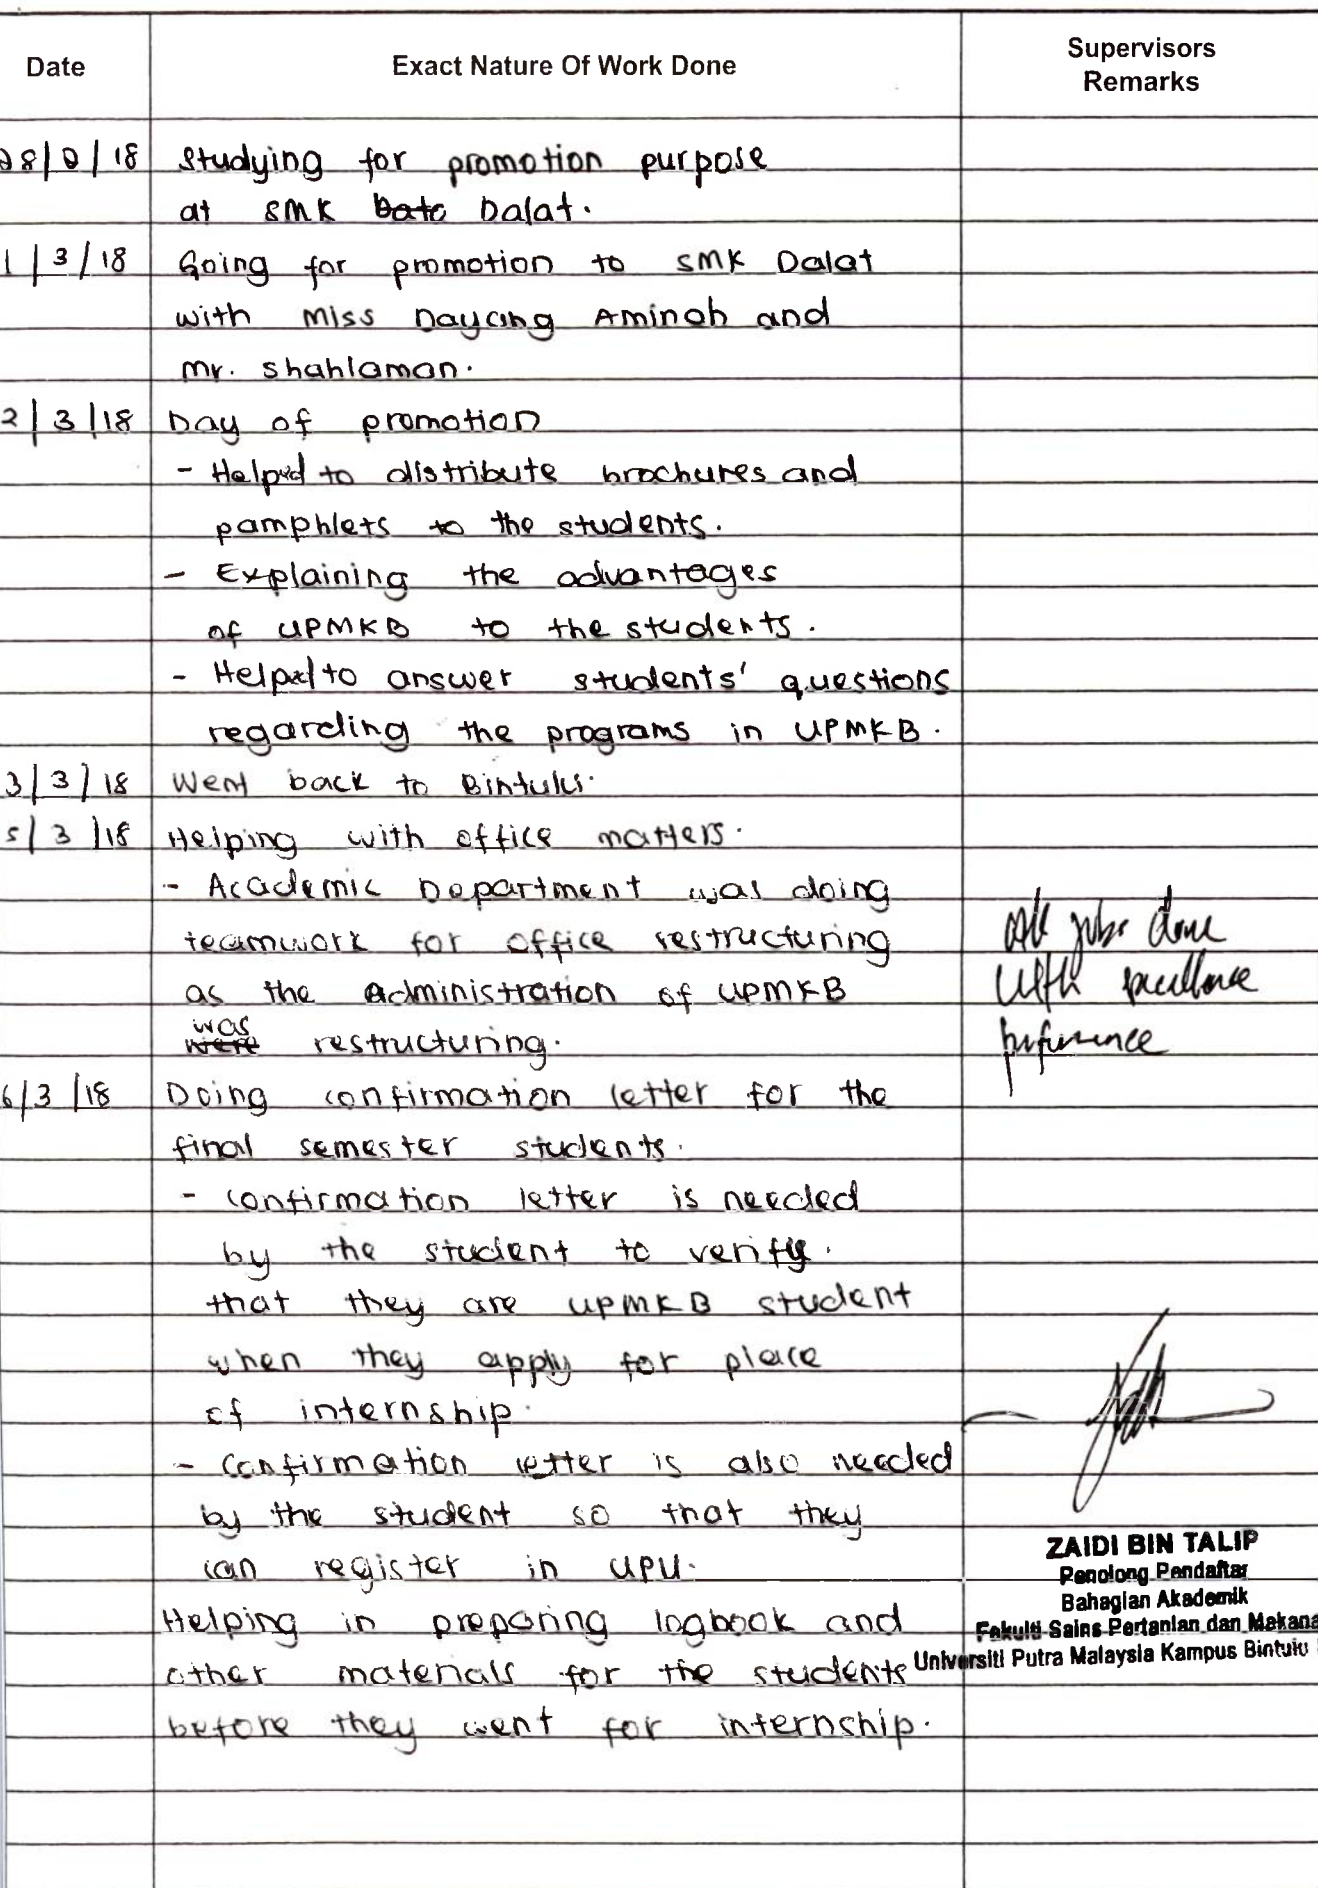 Date Exact Nature Of Work Done Supervisors Remarks
28/2/18 Studying for promotion purpose
at SMK Dato Dalat.
1/3/18 Going for promotion to SMK Dalat
with Miss Dayang Aminah and
Mr. Shahlaman.
2/3/18 Day of promotion
- Helped to distribute brochures and
pamphlets to the students.
- Explaining the advantages
of UPMKB to the students.
- Helped to answer students' questions
regarding the programs in UPMKB.
3/3/18 Went back to Bintulu.
5/3/18 Helping with office matters.
- Academic Department was doing
teamwork for office restructuring
as the administration of UPMKB
was
were restructuring.
All jobs done
with excellence
6/3/18 Doing confirmation letter for the
final semester students.
- confirmation letter is needed
by the student to verify.
that they are UPMKB student
when they apply for place
of internship.
- Confirmation letter is also needed
by the student so that they
can register in UPU.
Helping in preparing logbook and
other materials for the students
before they went for internship.
ZAIDI BIN TALIP
Penolong Pendaftar
Bahagian Akademik
Fakulti Sains Pertanian dan Makana
Universiti Putra Malaysia Kampus Bintulu